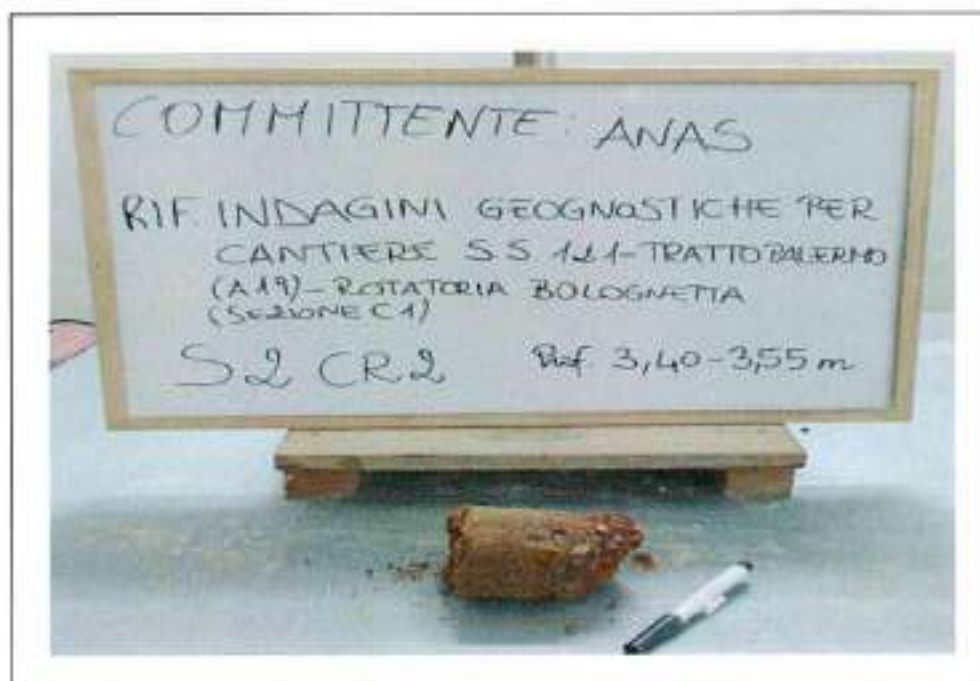 COMMITTENTE: ANAS
RIF. INDAGINI GEOGNOSTICHE PER
CANTIERE S.S. 121-TRATTO PALERMO
(A19)-ROTATORIA BOLOGNETTA
(SEZIONE C1)
S2 CR2 Prof. 3,40-3,55 m